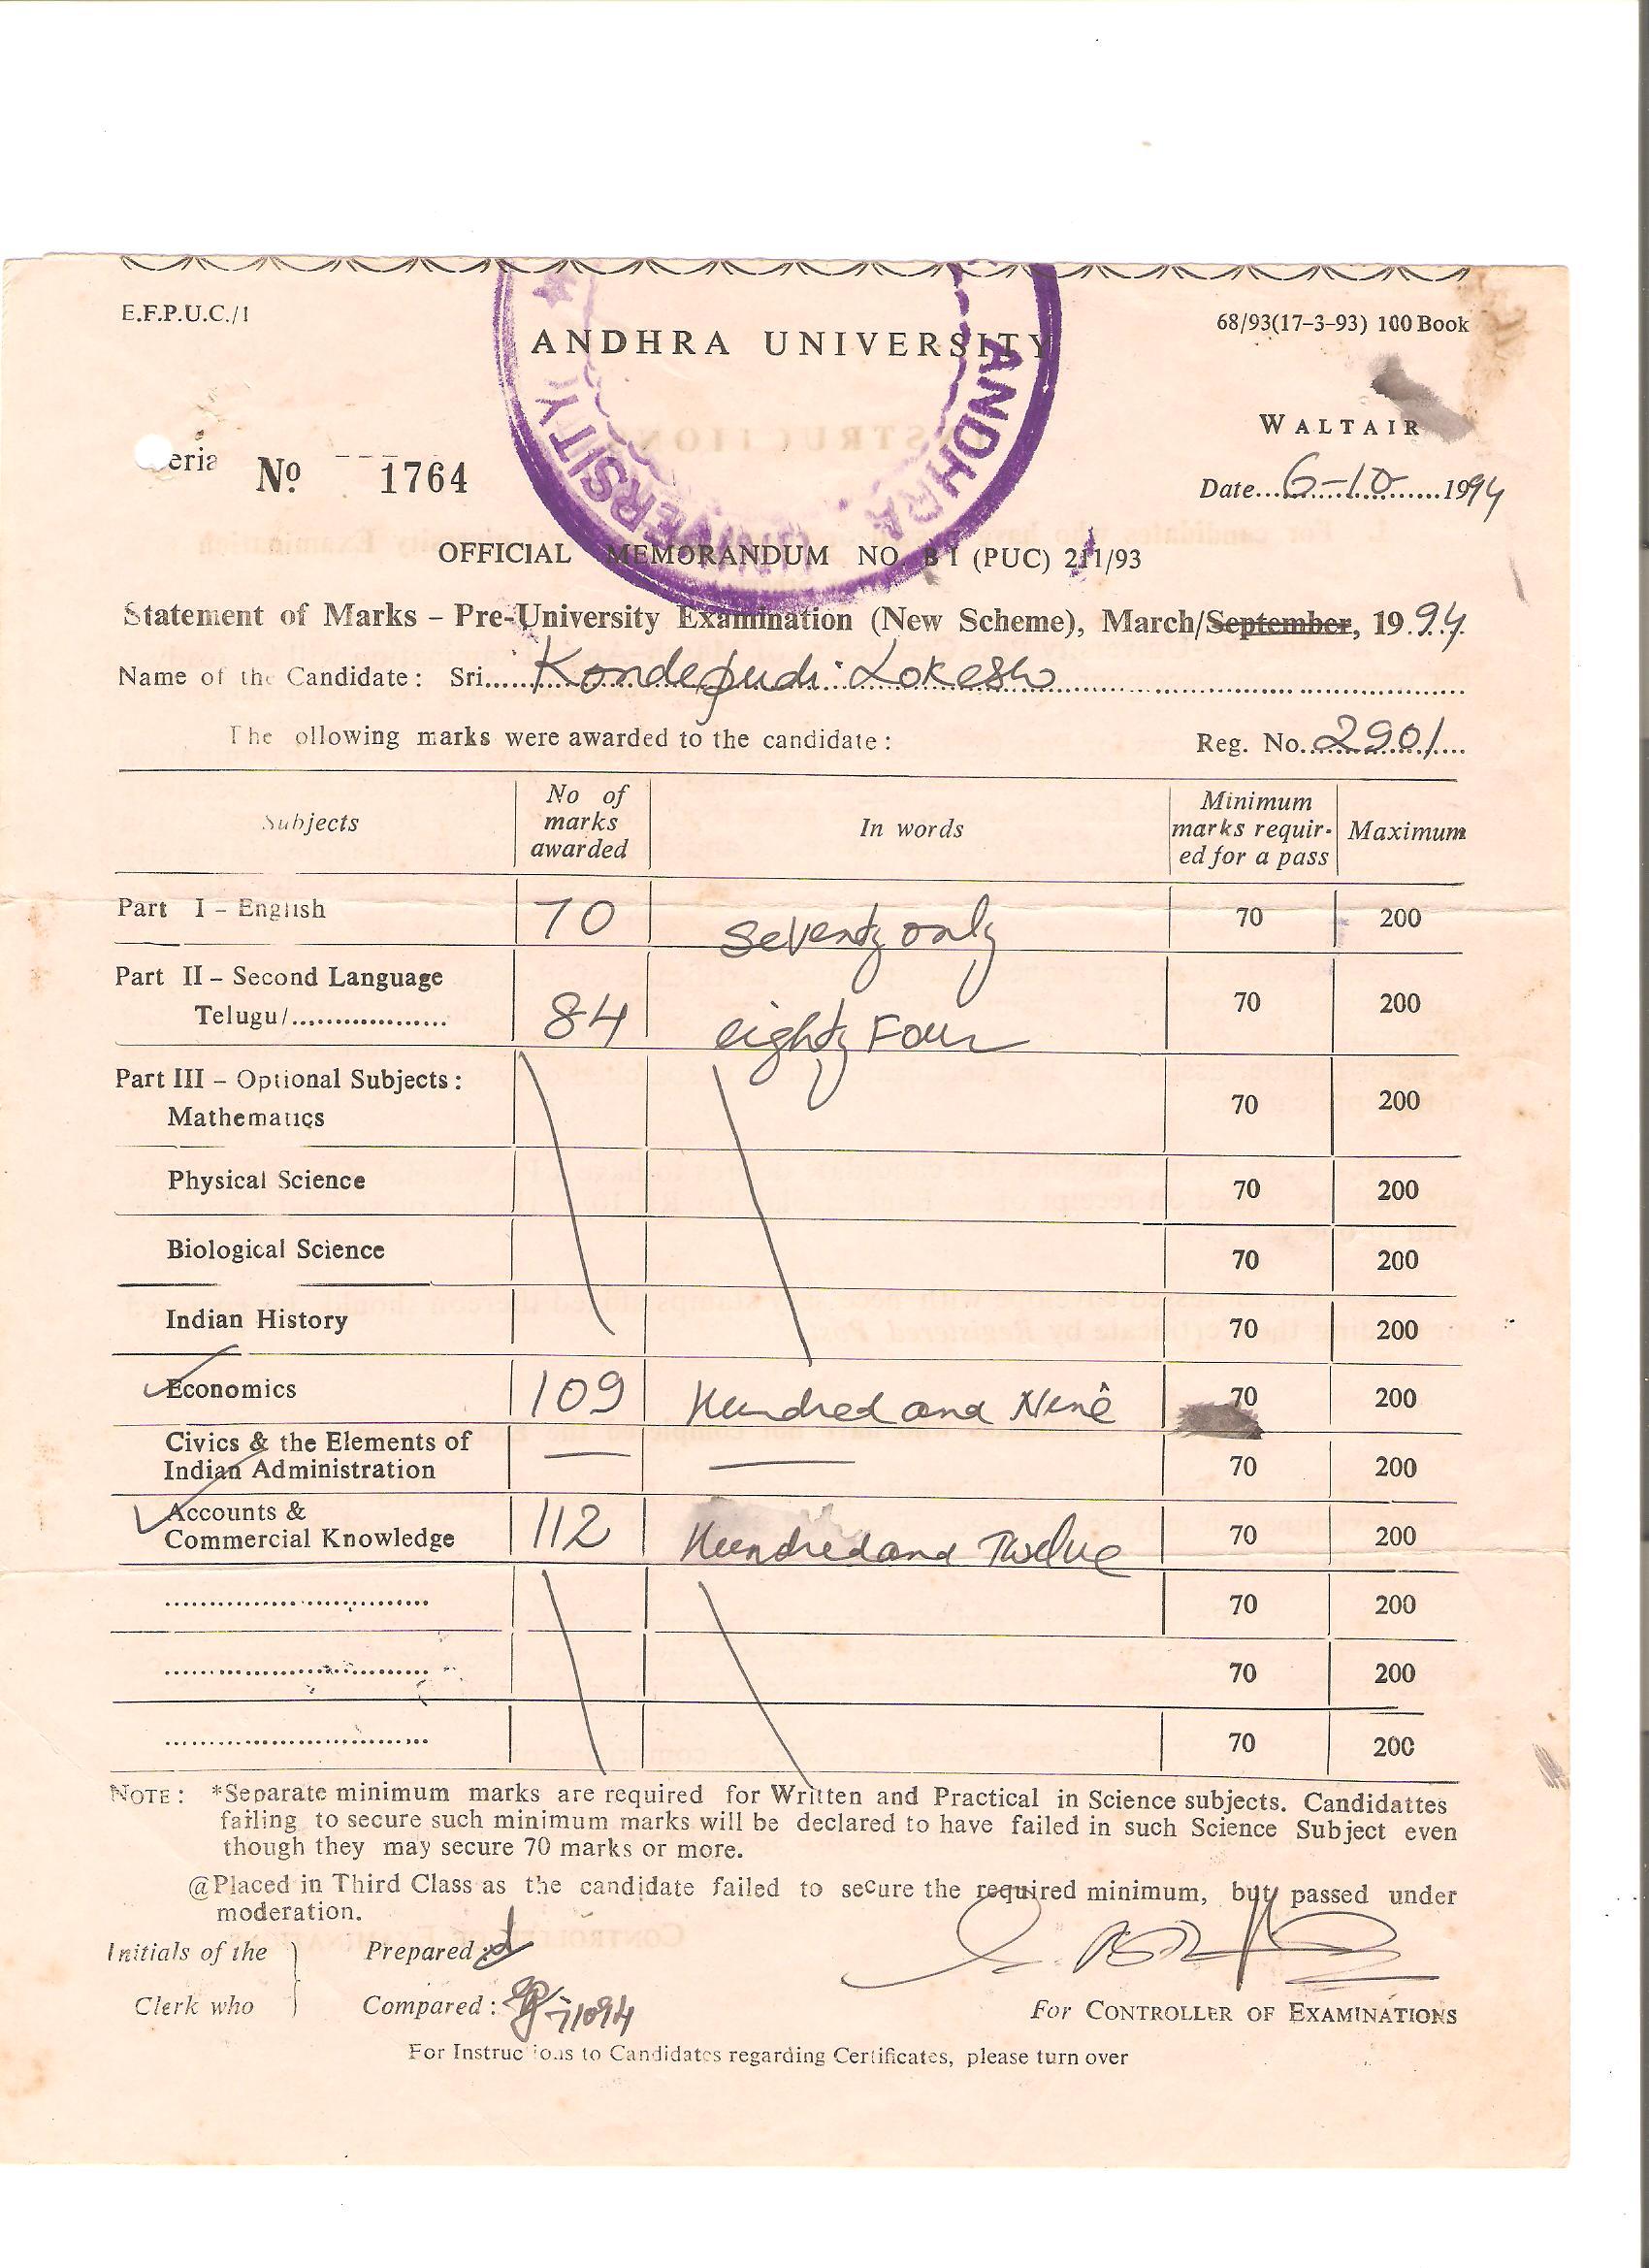 E.F.P.U.C./1
68/93(17-3-93) 100 Book
ANDHRA UNIVERSITY
ANDHRA UNIVERSITY
WALTAIR
eria No 1764
Date...6-10...1994
OFFICIAL MEMORANDUM NO. B I (PUC) 211/93
Statement of Marks – Pre-University Examination (New Scheme), March/September, 1994
Name of the Candidate: Sri...Kondepudi Lokesh
The ollowing marks were awarded to the candidate:
Reg. No. 2901
Subjects No of marks awarded In words Minimum marks requir-ed for a pass Maximum
Part I – English 70 Seventy only 70 200
Part II – Second Language
Telugu/.................. 84 eighty Four 70 200
Part III – Optional Subjects:
Mathematics 70 200
Physical Science 70 200
Biological Science 70 200
Indian History 70 200
Economics 109 Hundred and Nine 70 200
Civics & the Elements of
Indian Administration — — 70 200
Accounts &
Commercial Knowledge 112 Hundred and Twelve 70 200
.............................. 70 200
.............................. 70 200
.............................. 70 200
NOTE: *Separate minimum marks are required for Written and Practical in Science subjects. Candidattes
failing to secure such minimum marks will be declared to have failed in such Science Subject even
though they may secure 70 marks or more.
@Placed in Third Class as the candidate failed to secure the required minimum, but passed under
moderation.
Initials of the Prepared:
Clerk who Compared: 71094
For CONTROLLER OF EXAMINATIONS
For Instruc ions to Candidates regarding Certificates, please turn over